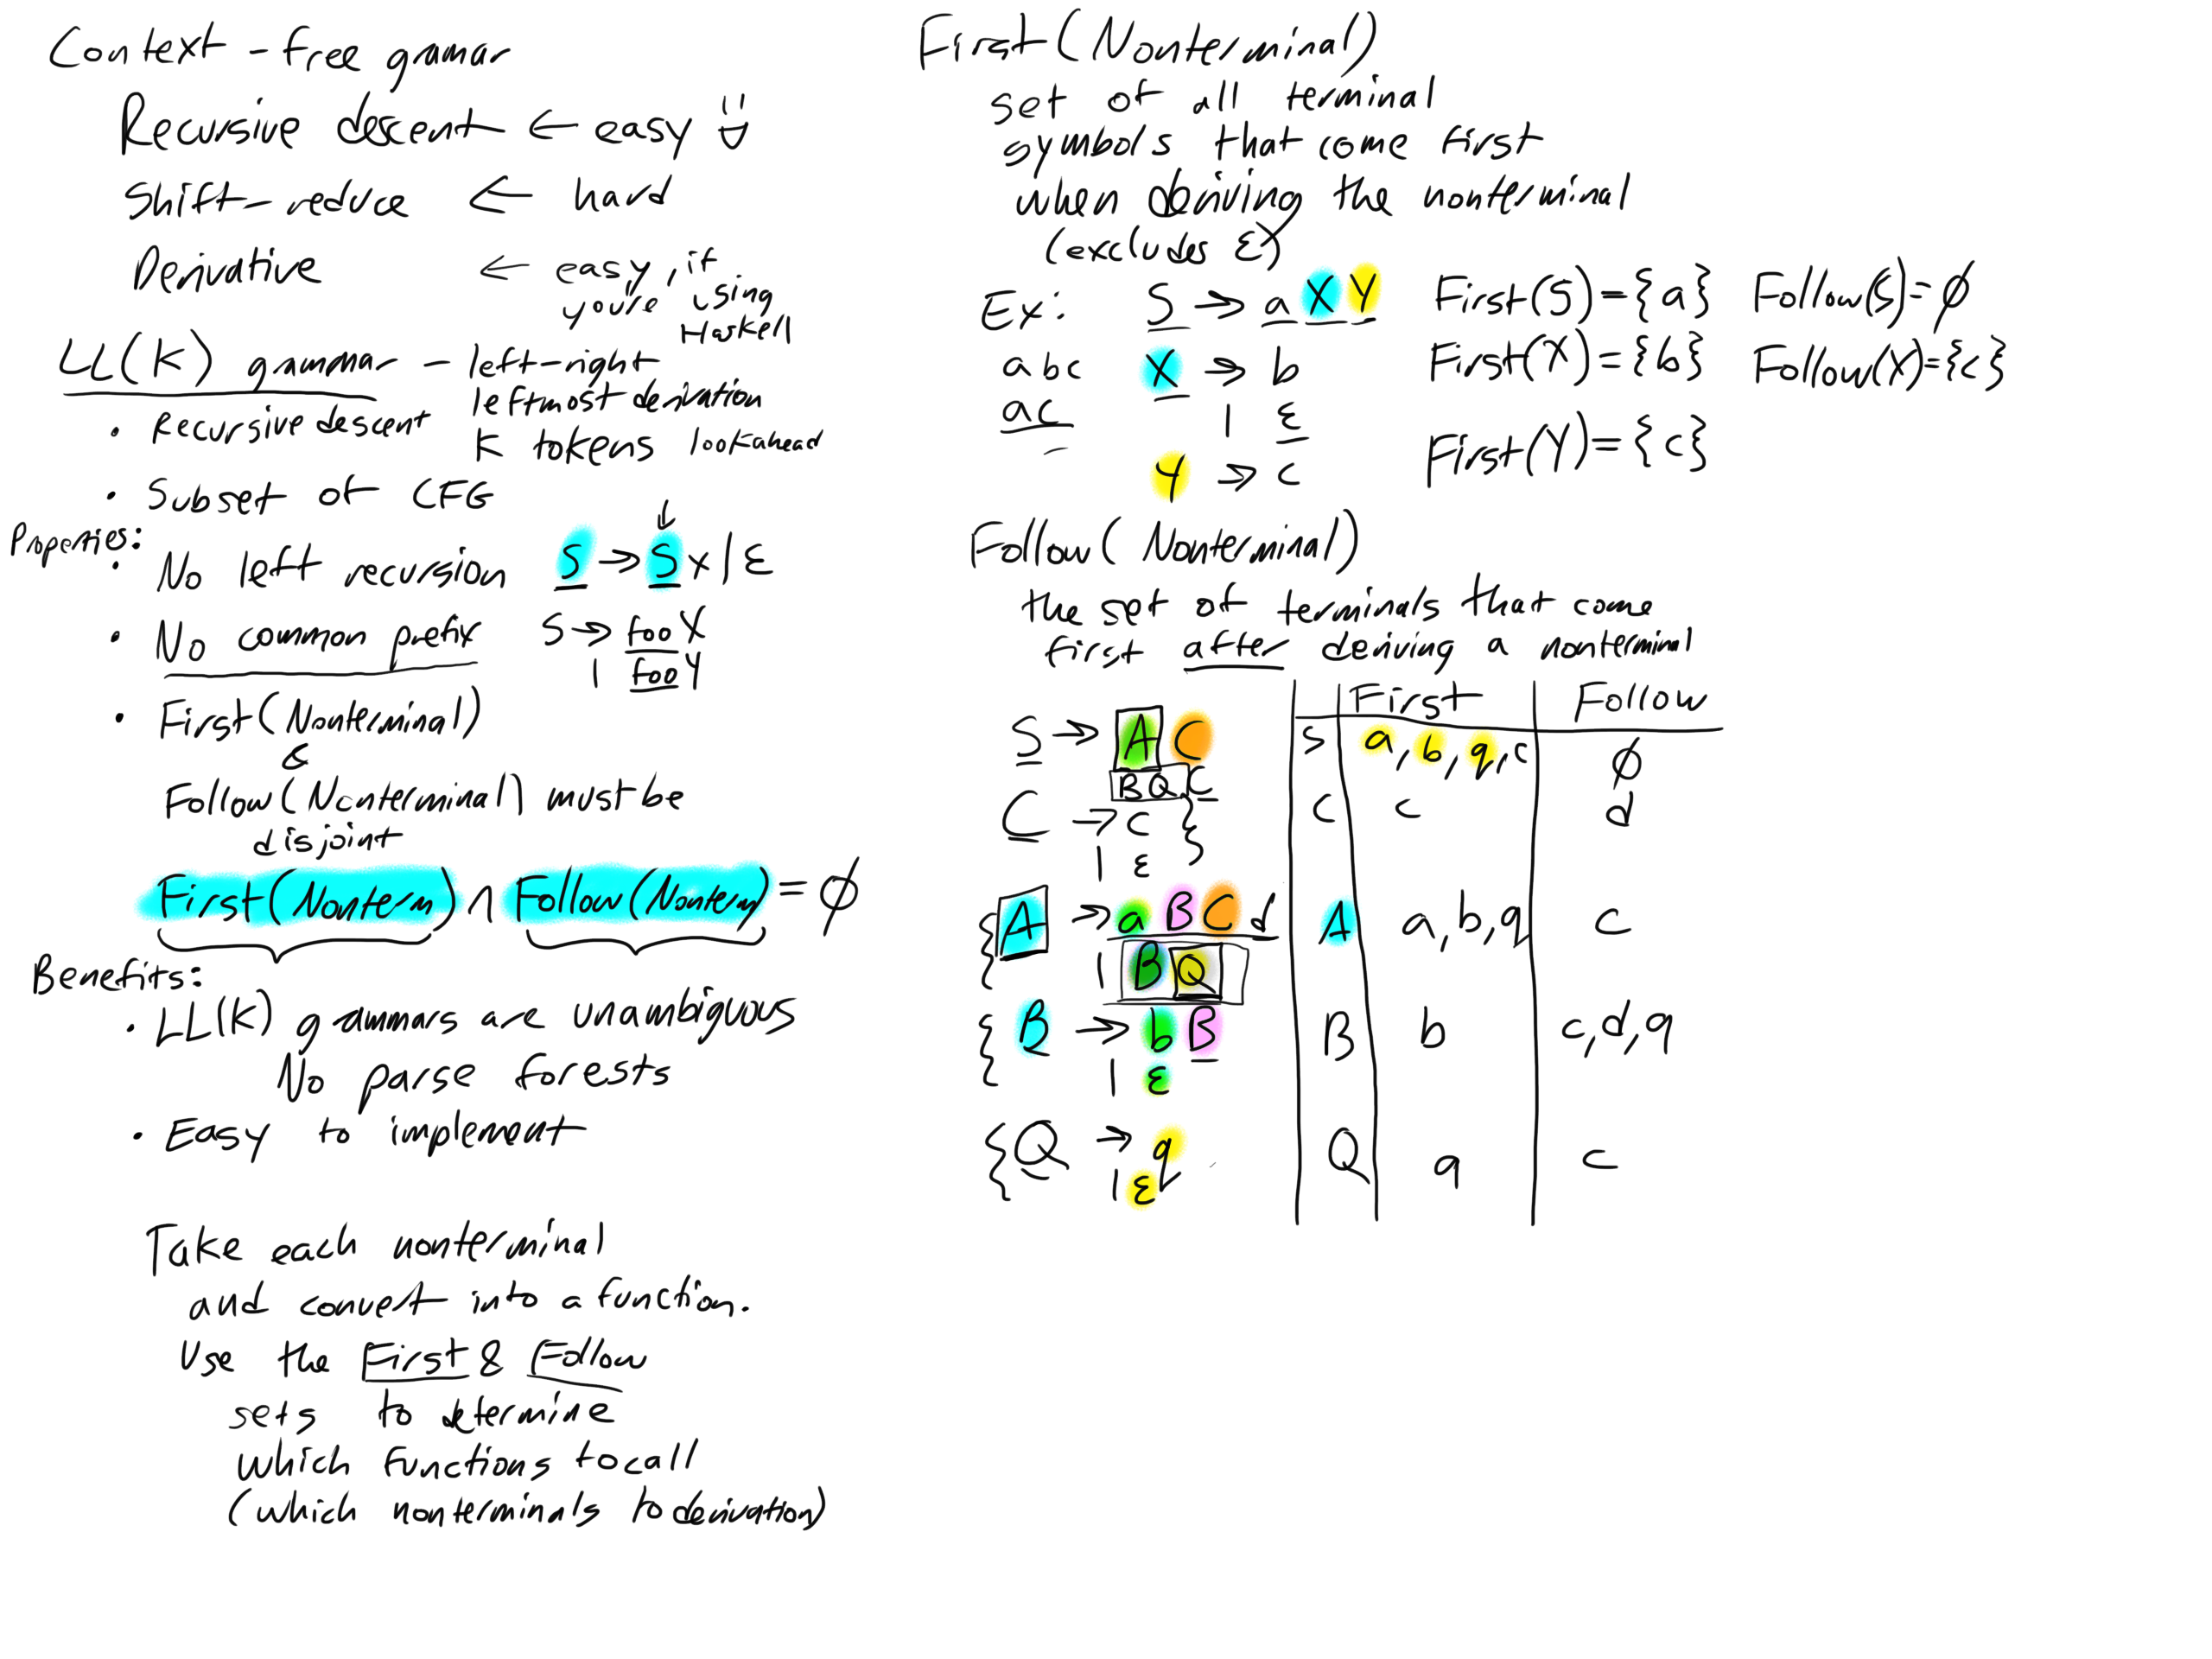 Context-free gramar
Recursive descent ← easy
Shift-reduce ← hard
Derivative ← easy, if
you're using
Haskell
LL(K) grammar - left-right
leftmost derivation
K tokens lookahead
• Recursive descent
• Subset of CFG
Properties:
• No left recursion S → S x | ε
• No common prefix S → foo X
| foo Y
• First(Nonterminal)
&
Follow(Nonterminal) must be
disjoint
First(Nonterm) ∩ Follow(Nonterm) = ∅
Benefits:
• LL(K) grammars are unambiguous
No parse forests
• Easy to implement
Take each nonterminal
and convert into a function.
Use the First & Follow
sets to determine
which functions to call
(which nonterminals to derivation)
First(Nonterminal)
set of all terminal
symbols that come first
when deriving the nonterminal
(excludes ε)
Ex: S → a X Y First(S)={a} Follow(S)=∅
abc X → b First(X)={b} Follow(X)={c}
ac | ε
Y → c First(Y)={c}
Follow(Nonterminal)
the set of terminals that come
first after deriving a nonterminal
First Follow
S → A C S a, b, q, c ∅
B Q C
C → c C c d
| ε
A → a B C d A a, b, q c
| B Q
B → b B B b c, d, q
| ε
Q → q Q q c
| ε